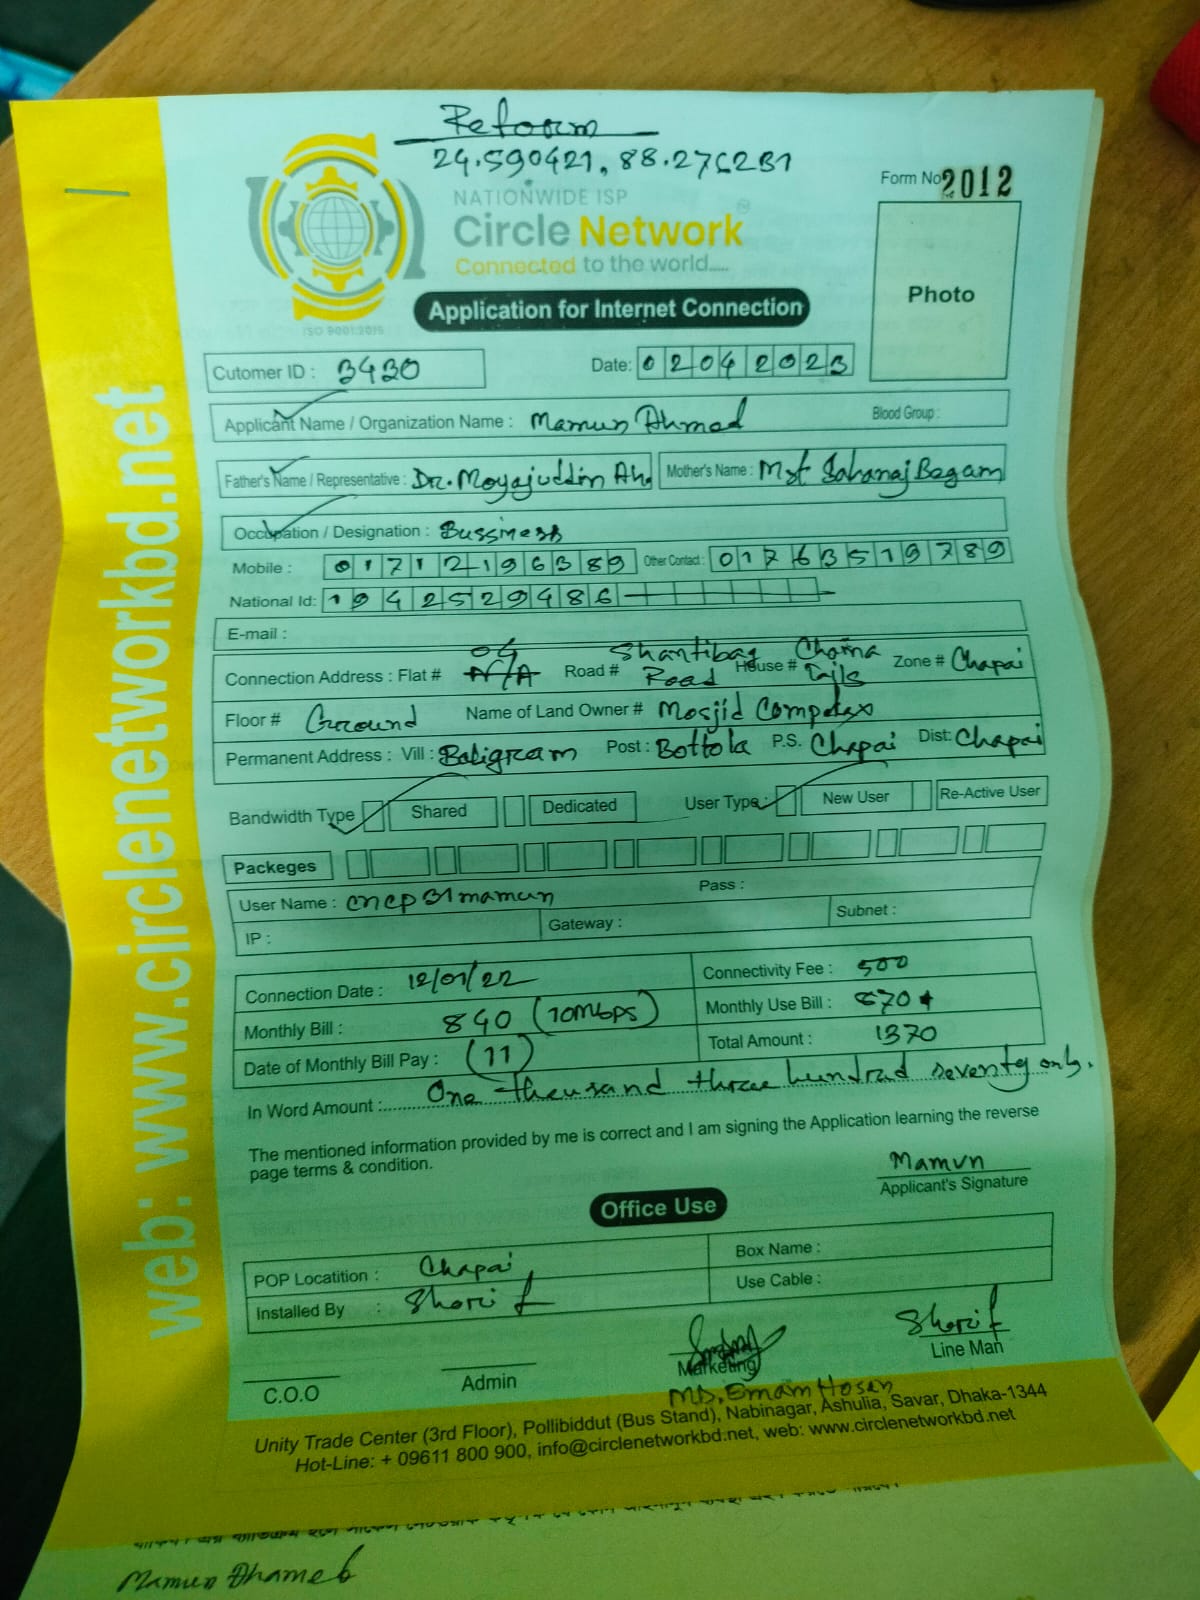 Reform
24.590421, 88.276231
NATIONWIDE ISP
Form No 2012
Circle Network
Connected to the world.....
ISO 9001:2015
Photo
Application for Internet Connection
Cutomer ID : 3430
Date: 02042023
Applicant Name / Organization Name : Mamun Ahmed
Blood Group :
Father's Name / Representative : Dr. Moyajuddin Ahd
Mother's Name : Mst Sahanaj Begam
Occupation / Designation : Bussiness
Mobile : 01712196389
Other Contact : 01763519789
National Id: 1942529486
E-mail :
Connection Address : Flat # N/A 04 Road # Shantibag Road House # Choina Tajls Zone # Chapai
Floor # Ground Name of Land Owner # Mosjid Compelex
Permanent Address : Vill : Baligram Post : Bottola P.S. Chapai Dist: Chapai
Bandwidth Type Shared Dedicated User Type : New User Re-Active User
Packeges
User Name : cncp31mamun Pass :
IP : Gateway : Subnet :
Connection Date : 12/01/22 Connectivity Fee : 500
Monthly Bill : 840 (10Mbps) Monthly Use Bill : 870+
Date of Monthly Bill Pay : (11) Total Amount : 1370
In Word Amount : One thousand three hundrad seventy only.
The mentioned information provided by me is correct and I am signing the Application learning the reverse
page terms & condition.
Mamun
Applicant's Signature
Office Use
POP Locatition : Chapai Box Name :
Installed By : Shorif Use Cable :
Shorif
C.O.O Admin Marketing Line Man
MD. Emam Hosen
Unity Trade Center (3rd Floor), Pollibiddut (Bus Stand), Nabinagar, Ashulia, Savar, Dhaka-1344
Hot-Line: + 09611 800 900, info@circlenetworkbd.net, web: www.circlenetworkbd.net
web: www.circlenetworkbd.net
Mamun Ahameb